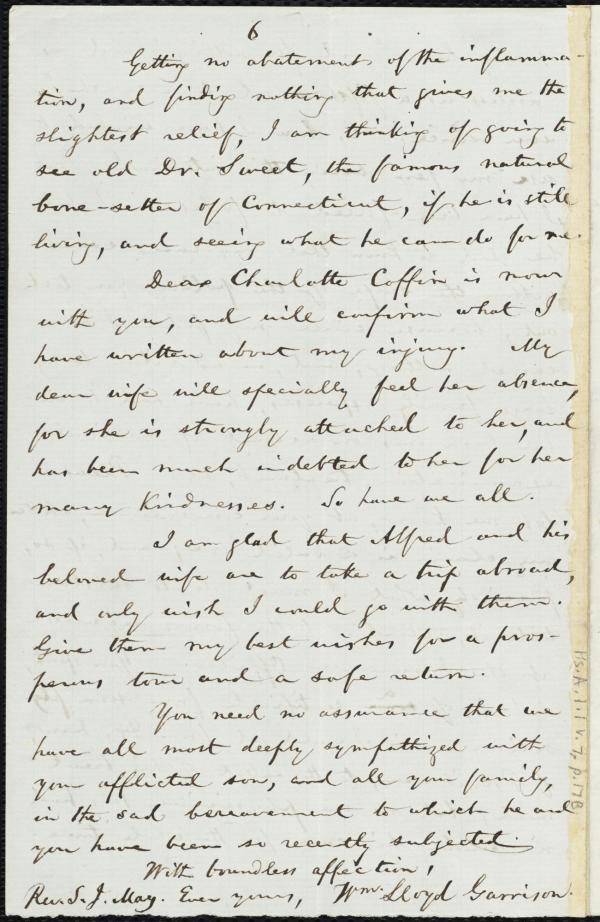 6
Getting no abatement of the inflamma-
tion, and finding nothing that gives me the
slightest relief, I am thinking of going to
see old Dr. Sweet, the famous natural
bone-setter of Connecticut, if he is still
living, and seeing what he can do for me.
Dear Charlotte Coffin is now
with you, and will confirm what I
have written about my injury. My
dear wife will specially feel her absence,
for she is strongly attached to her, and
has been much indebted to her for her
many kindnesses. So have we all.
I am glad that Alfred and his
beloved wife are to take a trip abroad,
and only wish I could go with them.
Give them my best wishes for a pros-
perous tour and a safe return.
You need no assurance that we
have all most deeply sympathized with
your afflicted son, and all your family,
in the sad bereavement to which he and
you have been so recently subjected.
With boundless affection,
Rev. S. J. May. Ever yours, Wm. Lloyd Garrison.
Ms.A.1.1 v.7, p.17B